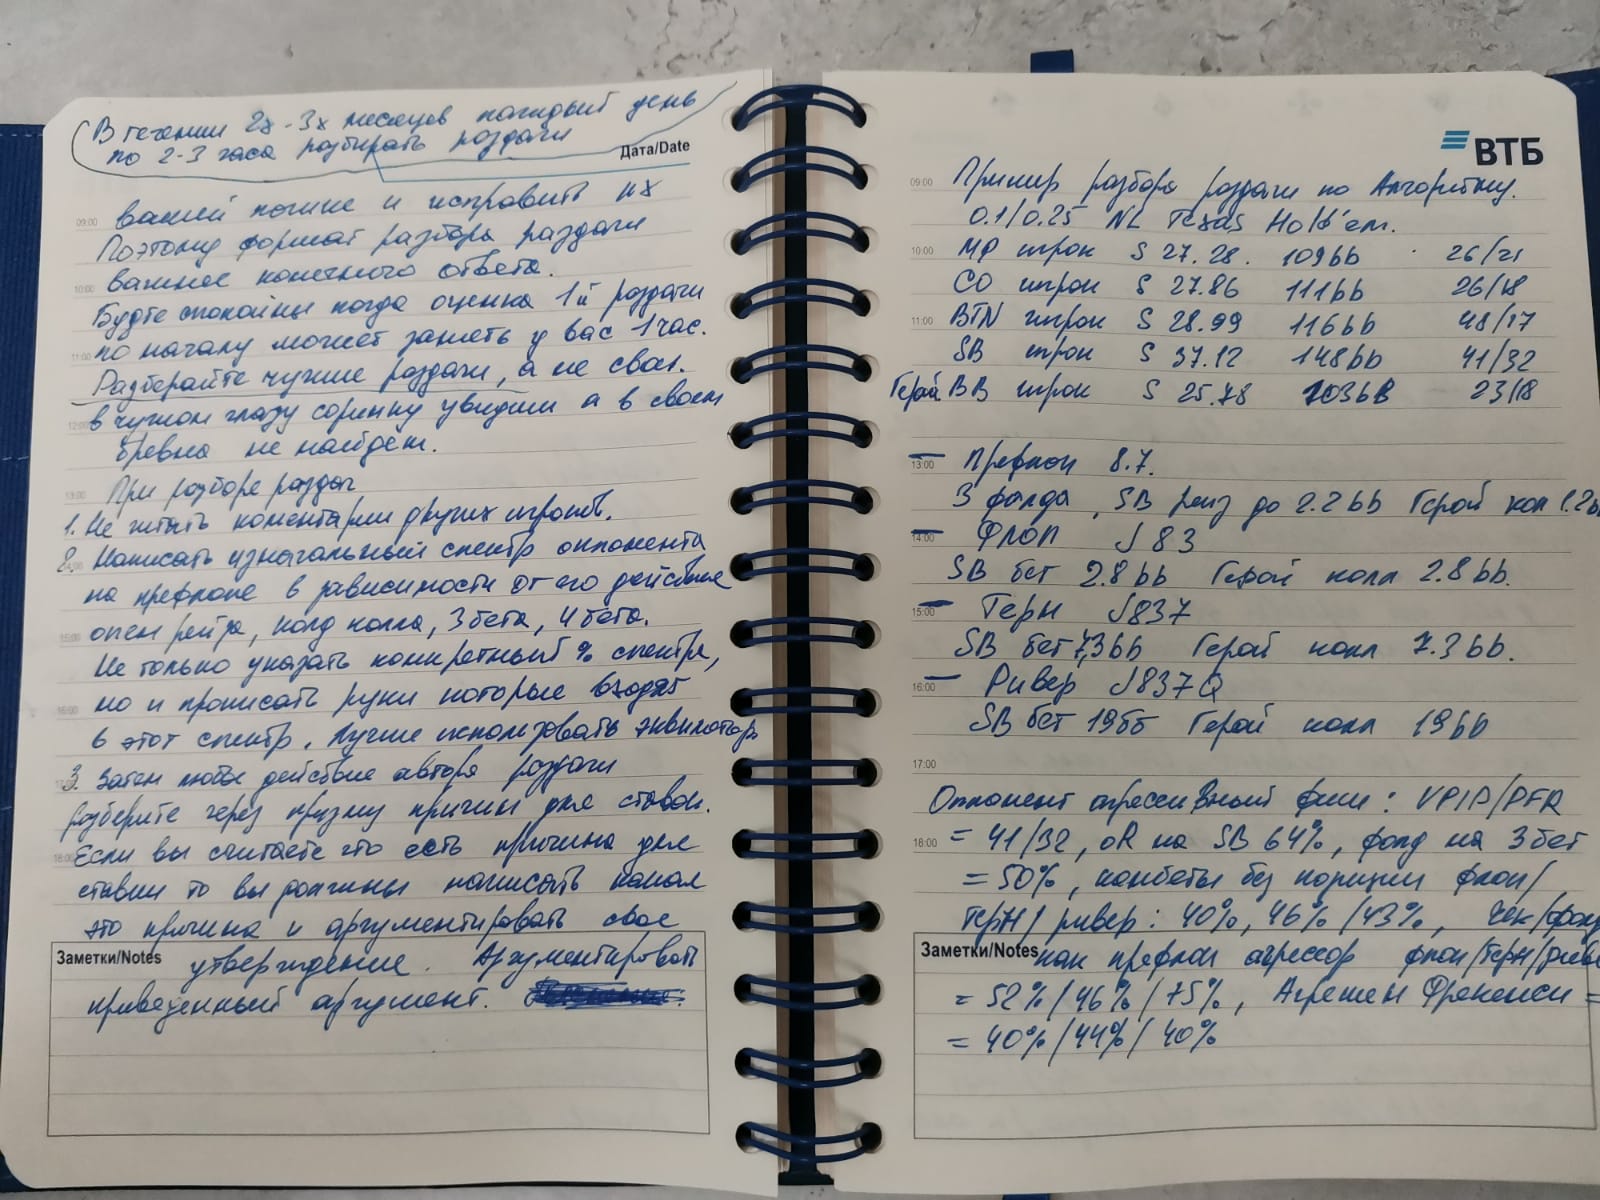 В течении 2х-3х месяцев каждый день
по 2-3 часа разбирать раздачи
Дата/Date
вашей логике и исправить их
09:00
Поэтому формат разбора раздачи
важнее конечного ответа.
10:00
Будте спокойны когда оценка 1й раздачи
по началу может занять у вас 1 час.
11:00
Разберайте чужие раздачи, а не свои.
в чужом глазу соринку увидим а в своем
12:00
бревна не найдем.
При разборе раздач
13:00
1. Не читать коментарии других игроков.
2. Написать изначальный спектр оппонента
на префлопе в зависимости от его действие
опен рейза, колд колла, 3 бета, 4 бета.
15:00
Не только указать конкретный % спектра,
но и прописать руки которые входят
16:00
в этот спектр. Лучше использовать эквилятор
3. Затем любое действие автора раздачи
разберите через призму причин для ставок.
Если вы считаете что есть причина для
18:00
ставки то вы должны написать какая
это причина и аргументировать свое
Заметки/Notes
утверждение. Аргументировать
приведенный аргумент.
ВТБ
09:00
Пример разбора раздачи по Алгоритму.
0.1/0.25 NL Texas Hold'em.
10:00
МР игрок $ 27.28. 109bb 26/21
CO игрок $ 27.86 111bb 26/18
11:00
BTN игрок $ 28.99 116bb 48/17
SB игрок $ 37.12 148bb 41/32
Герой BB игрок $ 25.78 103bb 23/18
13:00
— Префлоп 8.7.
3 фолда, SB рейз до 2.2bb Герой кол 1.2b
14:00
— Флоп J83
SB бет 2.8bb Герой колл 2.8bb.
15:00
— Терн J837
SB бет 7,3bb Герой колл 7.3bb.
16:00
— Ривер J837Q
SB бет 19бб Герой колл 19bb
17:00
Оппонент агрессивный фиш: VPIP/PFR
18:00
= 41/32, оR на SB 64%, фолд на 3 бет
= 50%, конбеты без позиции флоп/
терн/ривер: 40%, 46%/43%, чек/фолд
Заметки/Notes
как префлоп агрессор флоп/терн/риве
= 52%/46%/75%, Агрешен Фрекенси =
= 40%/44%/40%